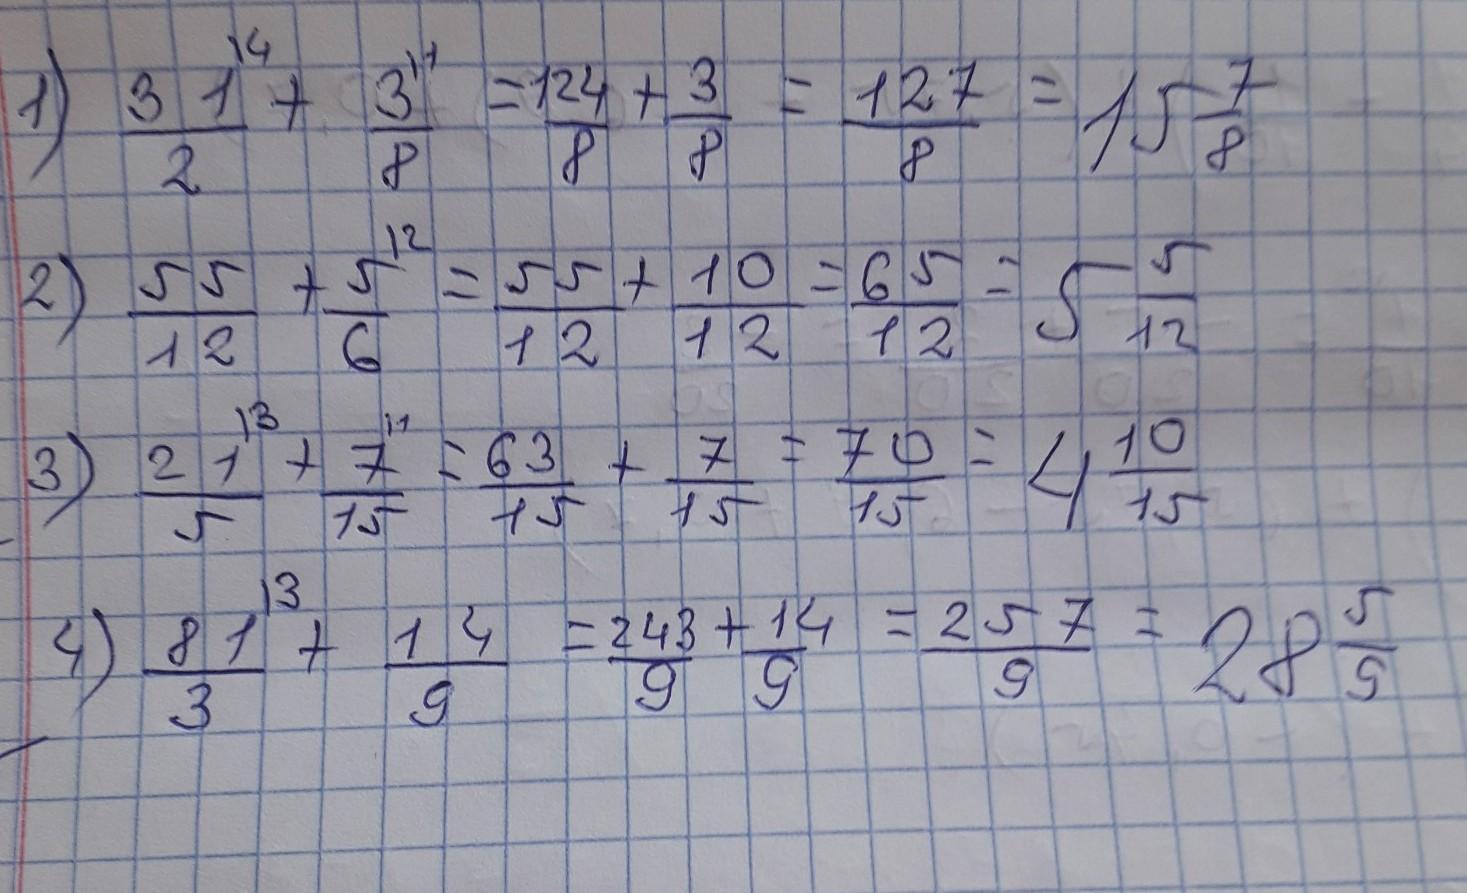 1) 31/2 \4 + 3/8 \1 = 124/8 + 3/8 = 127/8 = 15 7/8
2) 55/12 + 5/6 \2 = 55/12 + 10/12 = 65/12 = 5 5/12
3) 21/5 \3 + 7/15 \1 = 63/15 + 7/15 = 70/15 = 4 10/15
4) 81/3 \3 + 14/9 = 243/9 + 14/9 = 257/9 = 28 5/9